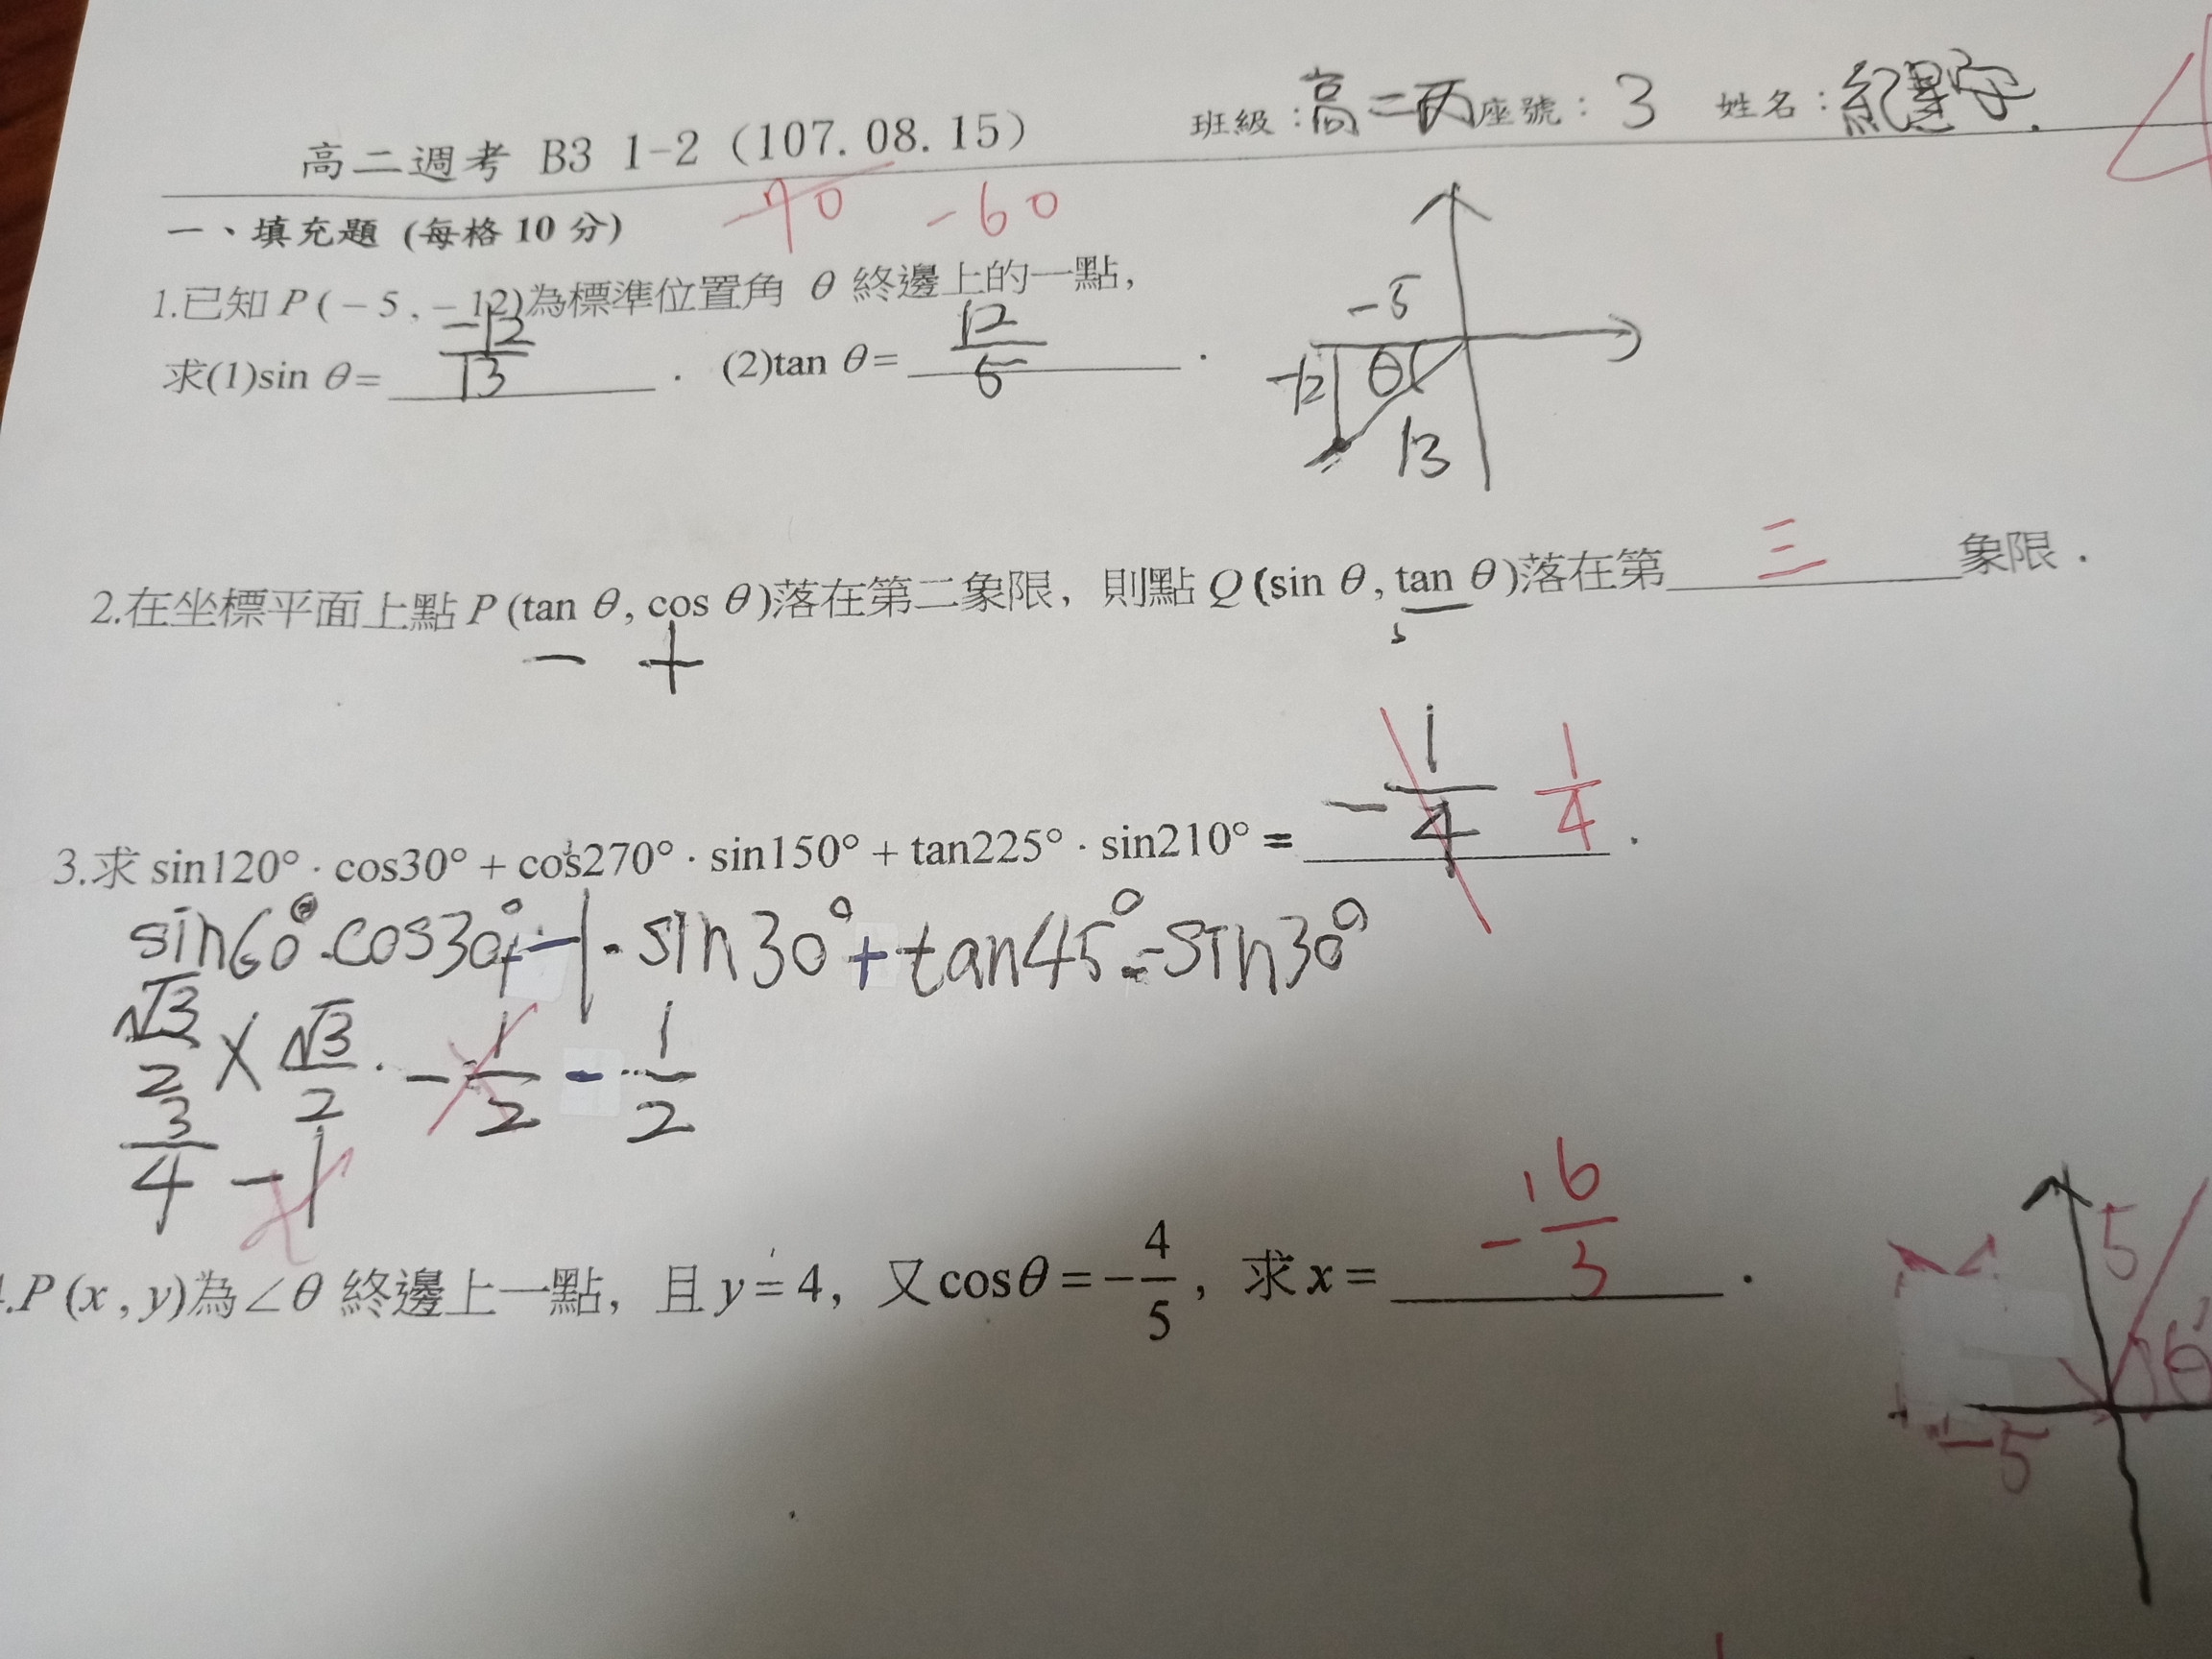 高二週考 B3 1-2 (107.08.15) 班級：高二丙 座號：3 姓名：紀
-70 -60
一、填充題 (每格10分)
1.已知 P(-5, -12)為標準位置角 θ 終邊上的一點，
求(1)sin θ= -12/13 . (2)tan θ= 12/5 .
-5
-12 θ
13
2.在坐標平面上點 P(tan θ, cos θ)落在第二象限，則點 Q(sin θ, tan θ)落在第 三 象限．
- + -
3.求 sin120° · cos30° + cos270° · sin150° + tan225° · sin210° = -1/4 1/4 .
sin60°·cos30°+-1·sin30°+tan45°·-sin30°
√3/2 × √3/2 · -1/2 - 1/2
3/4 -1
.P(x, y)為∠θ 終邊上一點，且 y=4，又cosθ=-4/5，求 x= -16/3 .
5
θ
-5